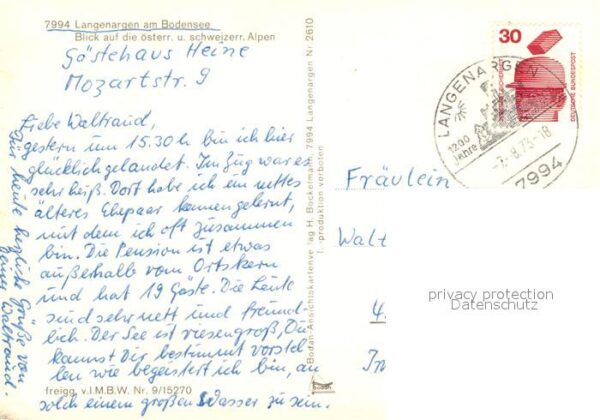 7994 Langenargen am Bodensee
Blick auf die österr. u. schweizerr. Alpen
Gästehaus Heine
Mozartstr. 9
Liebe Waltraud,
gestern um 15.30 h bin ich hier
glücklich gelandet. Im Zug war es
sehr heiß. Dort habe ich ein nettes
älteres Ehepaar kennengelernt,
mit dem ich oft zusammen
bin. Die Pension ist etwas
außerhalb vom Ortskern
und hat 19 Gäste. Die Leute
sind sehr nett und freund-
lich. Der See ist riesengroß, Du
kannst Dir bestimmt vorstel-
len wie begeistert ich bin, an
solch einem großen Wasser zu sein.
Für heute herzliche Grüße von
Deiner Waltraud.
freigg. v.I.M.B.W. Nr. 9/15270
Bodan-Ansichtskartenverlag H. Bockelmann 7994 Langenargen Nr. 2610
Reproduktion verboten
30
DEUTSCHE BUNDESPOST
LANGENARGEN
1200
Jahre
8.73-18
7994
Fräulein
Walt
4.
privacy protection
Datenschutz